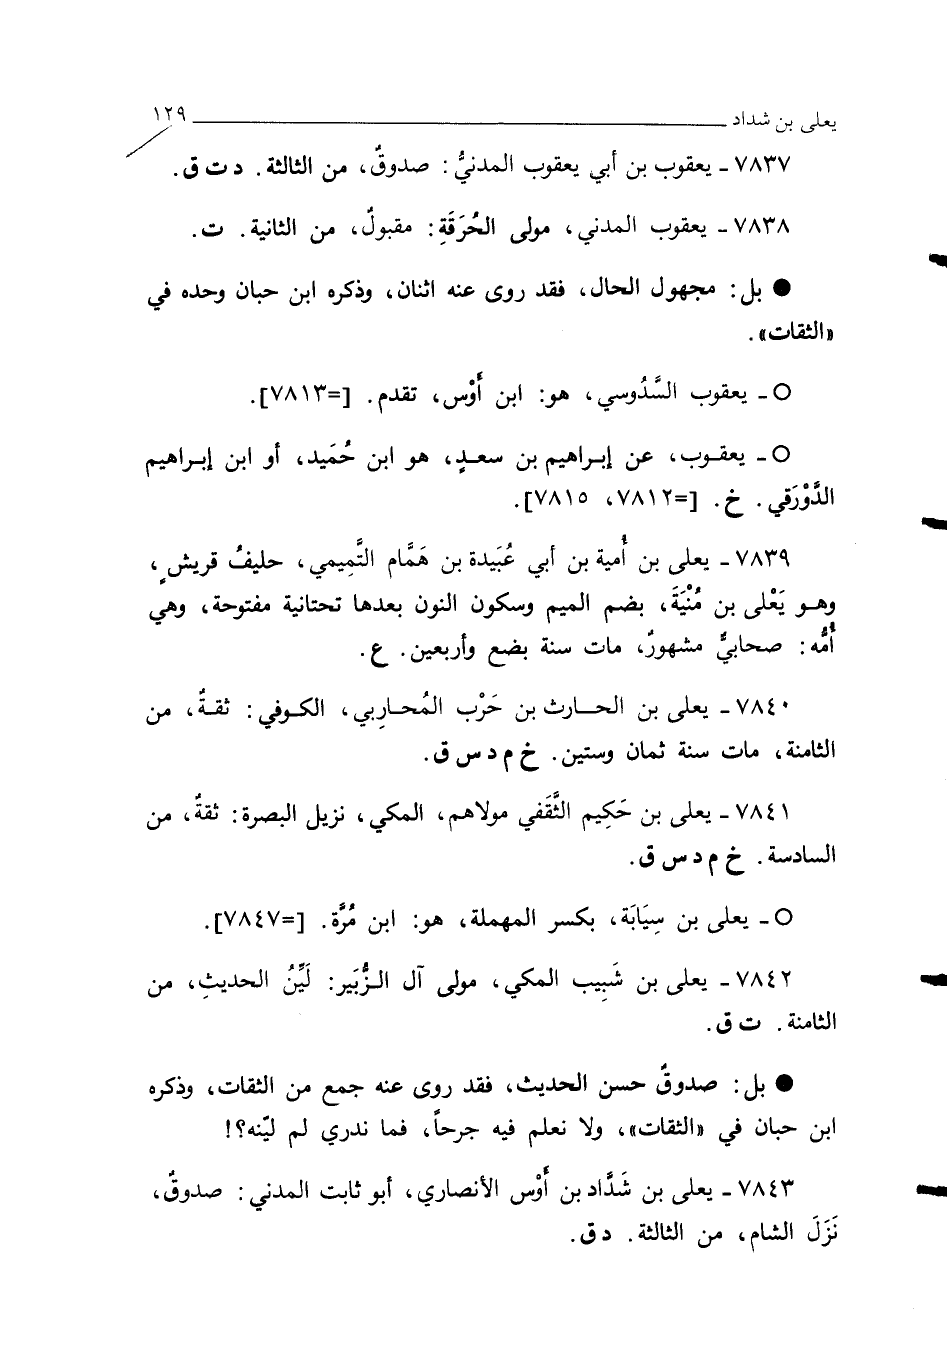 يعلى بن شداد ١٢٩
٧٨٣٧ ـ يعقوب بن أبي يعقوب المدنيُّ: صدوقٌ، من الثالثة. د ت ق.
٧٨٣٨ ـ يعقوب المدني، مولى الحُرَقَةِ: مقبولٌ، من الثانية. ت.
● بل: مجهول الحال، فقد روى عنه اثنان، وذكره ابن حبان وحده في
«الثقات».
○ ـ يعقوب السَّدُوسي، هو: ابن أَوْس، تقدم. [=٧٨١٣].
○ ـ يعقوب، عن إبراهيم بن سعدٍ، هو ابن حُمَيد، أو ابن إبراهيم
الدَّوْرَقي. خ. [=٧٨١٢، ٧٨١٥].
٧٨٣٩ ـ يعلى بن أُمية بن أبي عُبَيدة بن هَمَّام التَّمِيمي، حليفُ قريشٍ،
وهو يَعْلى بن مُنْيَةَ، بضم الميم وسكون النون بعدها تحتانية مفتوحة، وهي
أُمُّه: صحابيٌّ مشهورٌ، مات سنة بضع وأربعين. ع.
٧٨٤٠ ـ يعلى بن الحارث بن حَرْب المُحارِبي، الكوفي: ثقةٌ، من
الثامنة، مات سنة ثمان وستين. خ م د س ق.
٧٨٤١ ـ يعلى بن حَكِيم الثَّقَفي مولاهم، المكي، نزيل البصرة: ثقةٌ، من
السادسة. خ م د س ق.
○ ـ يعلى بن سِيَابَة، بكسر المهملة، هو: ابن مُرَّة. [=٧٨٤٧].
٧٨٤٢ ـ يعلى بن شَبِيب المكي، مولى آل الزُّبَير: لَيِّنُ الحديثِ، من
الثامنة. ت ق.
● بل: صدوقٌ حسن الحديث، فقد روى عنه جمع من الثقات، وذكره
ابن حبان في «الثقات»، ولا نعلم فيه جرحاً، فما ندري لم ليّنه؟!
٧٨٤٣ ـ يعلى بن شَدَّاد بن أَوْس الأنصاري، أبو ثابت المدني: صدوقٌ،
نَزَلَ الشام، من الثالثة. د ق.